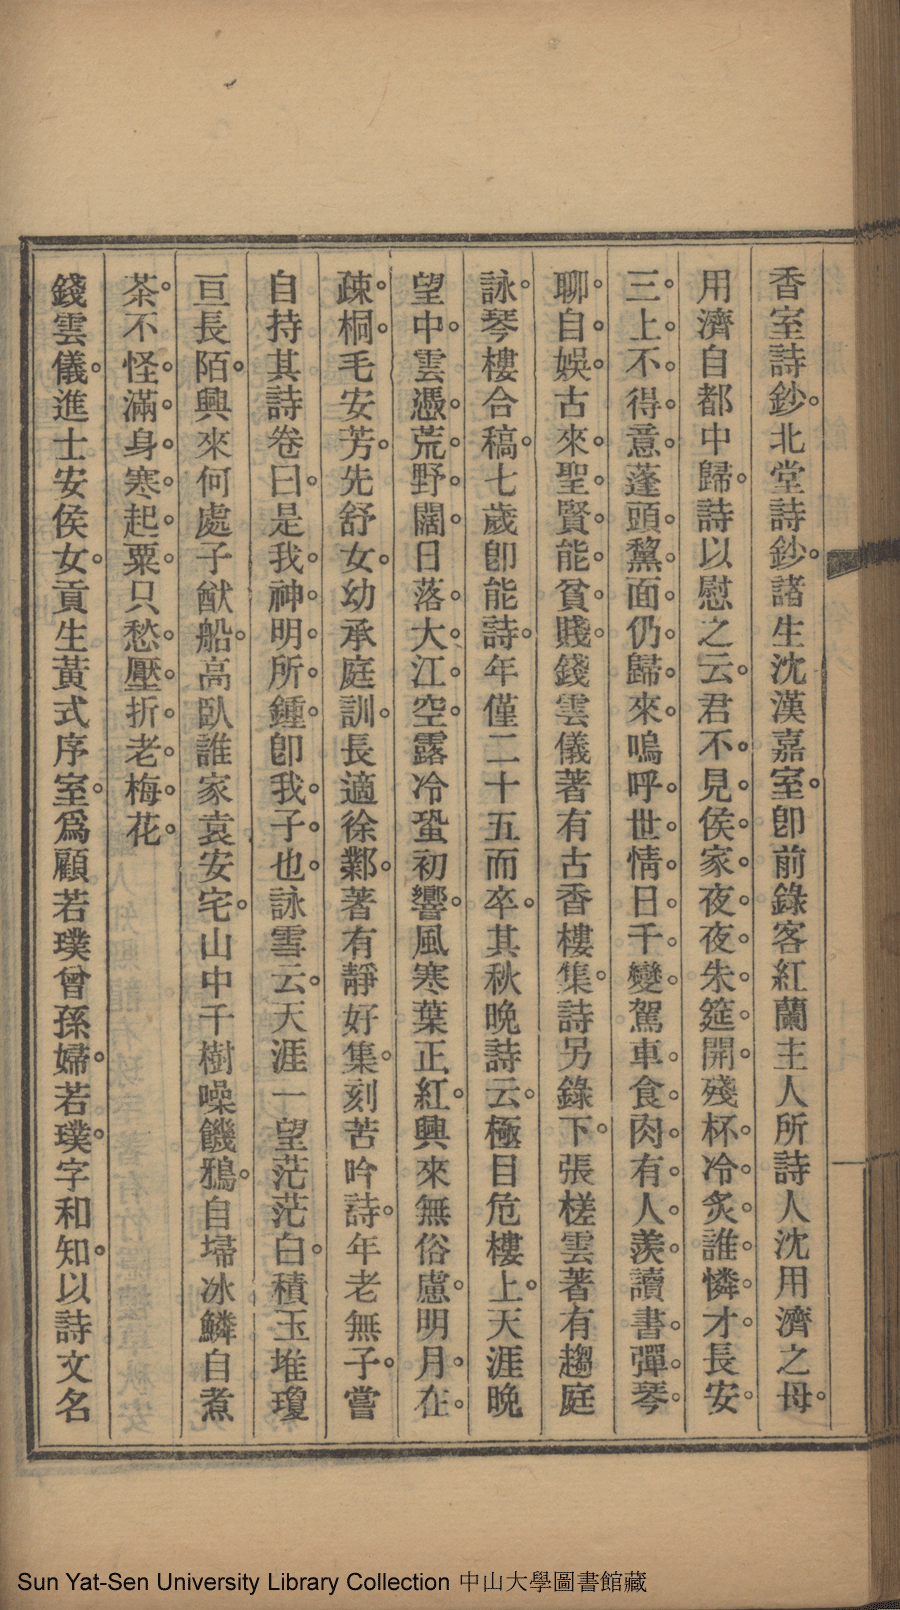 香室詩鈔。北堂詩鈔。諸生沈漢嘉室。卽前錄客紅蘭主人所詩人沈用濟之母。
用濟自都中歸。詩以慰之云。君不。見。侯。家。夜。夜。朱。筵。開。殘杯。冷。炙。誰。憐。才。長安。
三。上。不。得。意。蓬頭。黧。面。仍。歸。來。嗚呼。世。情。日。千。變。駕車。食。肉。有。人。羨。讀書。彈。琴。
聊。自。娛。古來。聖。賢。能。貧。賤。錢雲儀著有古香樓集。詩另錄下。張槎雲著有趨庭
詠。琴樓合稿。七歲卽能詩。年僅二十五而卒。其秋晚詩云。極目危樓上。天涯晚
望中。雲憑。荒。野。闊。日落。大。江。空。露冷蛩初響。風寒葉正紅。興來無俗慮。明月。在。
疎。桐。毛安芳。先舒女。幼承庭訓。長適徐鄴。著有靜好集。刻苦吟詩。年老無子。嘗
自持其詩卷曰。是我。神。明。所。鍾。卽我。子。也。詠雪云。天涯一望茫茫白。積玉堆瓊
亘長陌。興來何處子猷船。高臥誰家袁安宅。山中千樹噪饑鴉。自埽冰鱗自煮
茶。不怪。滿。身。寒。起。粟。只愁。壓。折。老。梅。花。
錢雲儀。進士安侯女。貢生黃式序室。爲顧若璞曾孫婦。若璞。字和知。以詩文名
Sun Yat-Sen University Library Collection 中山大學圖書館藏